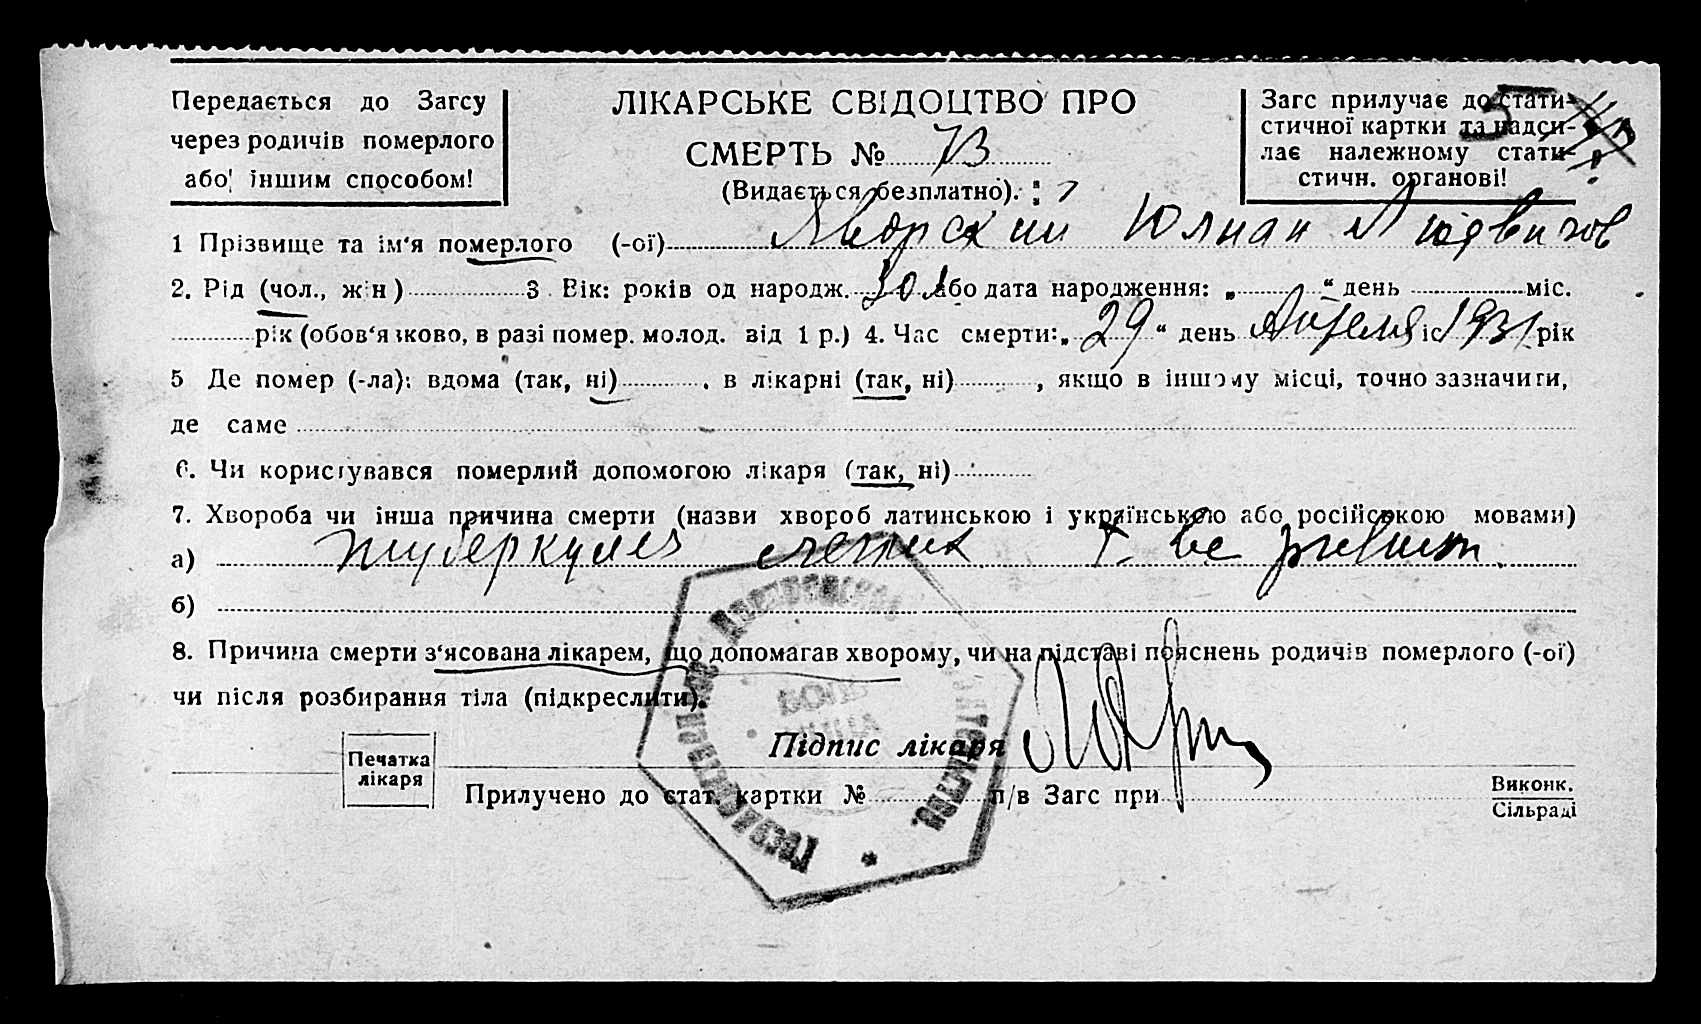 Передається до Загсу
через родичів померлого
або іншим способом!
ЛІКАРСЬКЕ СВІДОЦТВО ПРО
СМЕРТЬ № 73
(Видається безплатно).
Загс прилучає до стати-
стичної картки та надси-
лає належному стати-
стичн. органові!
1 Прізвище та ім'я померлого (-ої) Яворский Юлиан Людвигов
2. Рід (чол., жін) 3 Вік: років од народж. 30 або дата народження: „ “ день міс.
рік (обов'язково, в разі помер. молод. від 1 р.) 4. Час смерти: „29“ день Апреля 1931 рік
5 Де помер (-ла): вдома (так, ні) , в лікарні (так, ні) , якщо в іншому місці, точно зазначити,
де саме
6. Чи користувався померлий допомогою лікаря (так, ні)
7. Хвороба чи інша причина смерти (назви хвороб латинською і українською або російською мовами)
а) туберкулез легких
б)
8. Причина смерти з'ясована лікарем, що допомагав хворому, чи на підставі пояснень родичів померлого (-ої)
чи після розбирання тіла (підкреслити).
Підпис лікаря
Печатка
лікаря
Прилучено до стат. картки № п/в Загс при
Виконк.
Сільраді